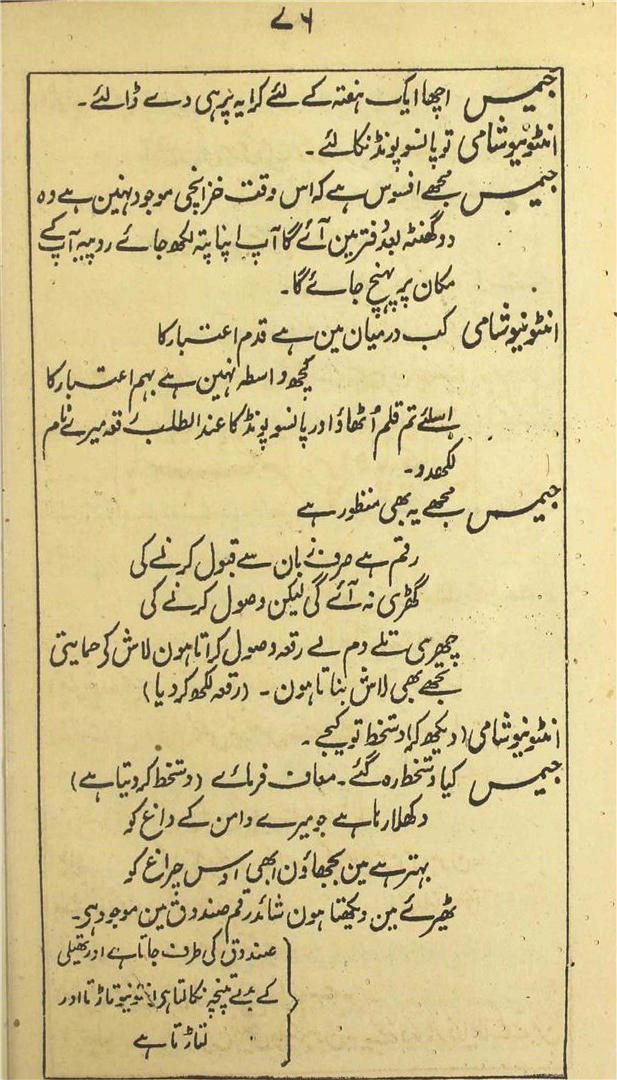 ۷۶
جیمس اچھا ایک ہفتہ کے لئے کرایہ پر ہی دے ڈالئے۔
انٹونیو شامی تو پانسو پونڈ نکالئے۔
جیمس مجھے افسوس ہے کہ اس وقت خزانچی موجود نہین ہے وہ
دو گھنٹہ بعد دفتر مین آئے گا آپ اپنا پتہ لکھ جائے روپیہ آپ کے
مکان پر پہنچ جائے گا۔
انٹونیو شامی کب درمیان مین ہے قدم اعتبار کا
کچھ واسطہ نہین ہے بہم اعتبار کا
اسلئے تم قلم اُٹھاؤ اور پانسو پونڈ کا عند الطلب رقعہ میرے نام
لکھدو۔
جیمس مجھے یہ بھی منظور ہے
رقم ہے صرف زبان سے قبول کرنے کی
گھڑی نہ آئے گی لیکن وصول کرنے کی
چھری تلے دم لے رقعہ وصول کراتا ہون لاش کے حمایتی
تجھے بھی لاش بناتا ہون۔ (رقعہ لکھ کر دیا)
انٹونیو شامی (دیکھ کر) دستخط تو کیجے۔
جیمس کیا دستخط رہ گئے۔ معاف فرمائے (دستخط کر دیتا ہے)
دکھلا رہا ہے جو میرے دامن کے داغ کو
بہتر ہے مین بجھاؤن ابھی اوس چراغ کو
ٹھیرئے مین دیکھتا ہون شائد رقم صندوق مین موجود ہی۔
صندوق کی طرف جاتا ہے اور تھیلی
کے بدلے تپنچہ نکالتا ہی انٹونیو تاڑتا اور
لتاڑتا ہے